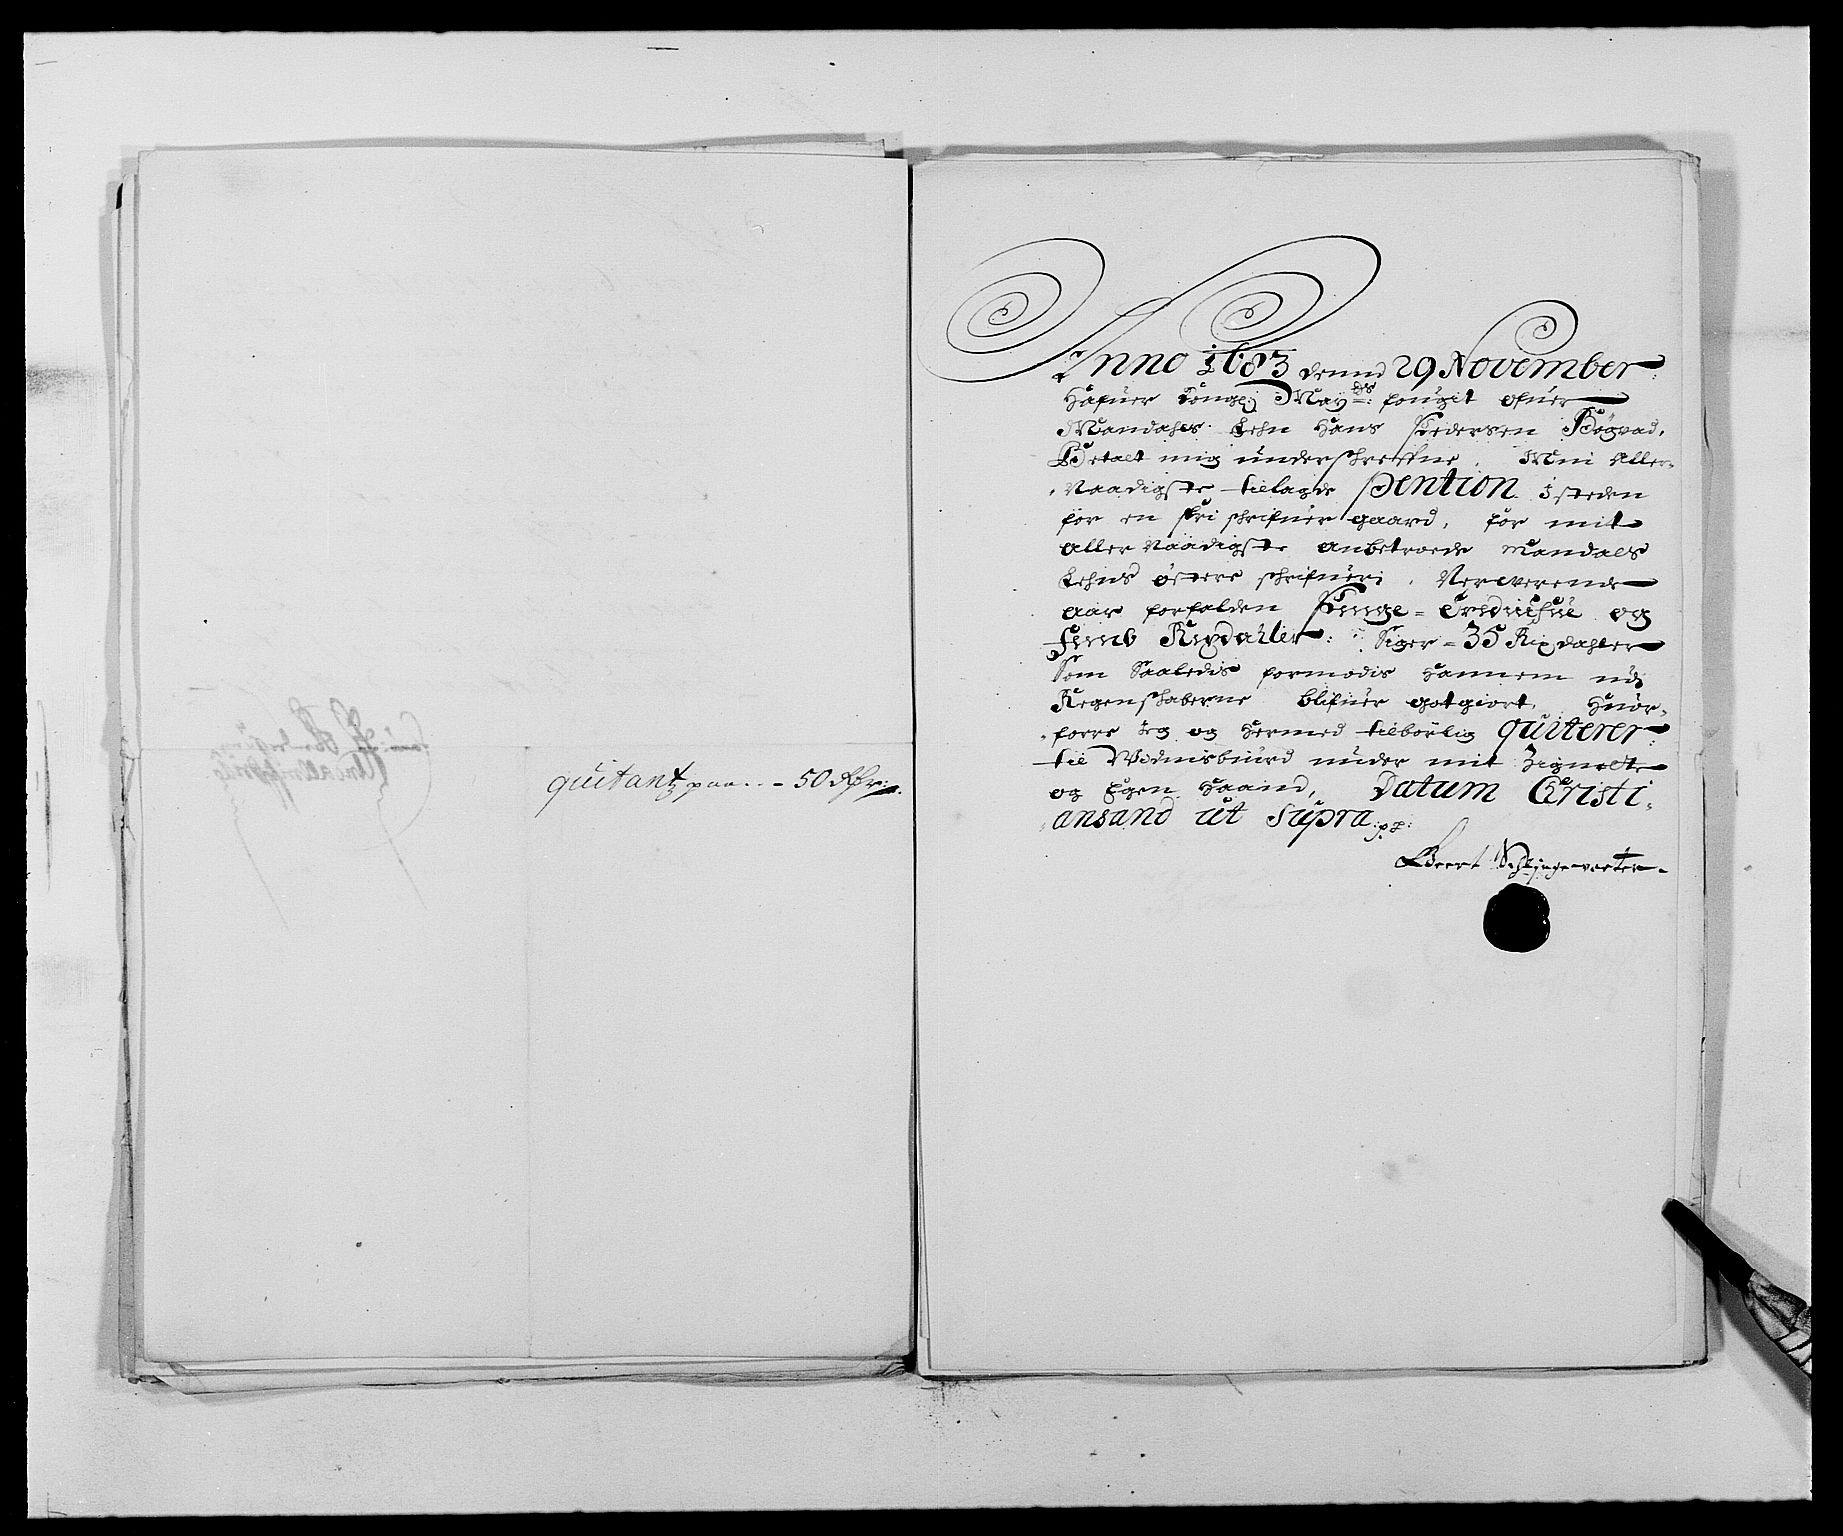 quitantz paa - - - 50 Rdr:
Anno 1683 dennd 29 November
Hafuer Kongl: May:ds: fougit ofuer
Mandahls Lehn Hans Pedersen Bögvad,
Betalt mig underschrefne, Min Aller-
Naadigste tillagde Pention i steden
for en fri schrifuer gaard, for mit
aller Naadigste anbetroede Mandals
Lehns östere schrifueri, Nerwerende
aar forfalden Penge - Trediuefüe og
femb Rixdaller: Siger - 35 Rixdahler
Som Saaledis formodis hannem udj
Regenskaberne blifuer gotgiort, Huor-
forre Jeg og hermed tilbörlig quiterer
til Widnisbiurd under mit Zignette
og Egen Haand, Datum Christi-
ansand ut Supra: pp:
Geert